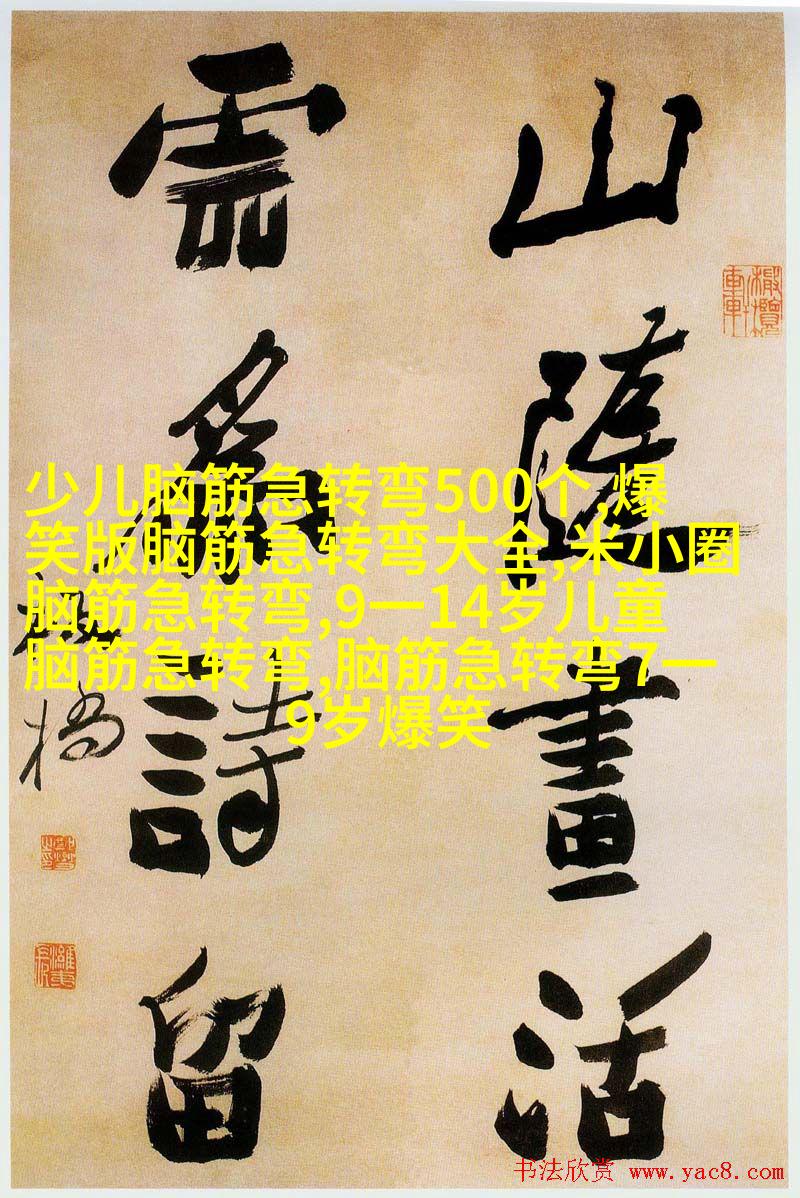 山隨畫活
雲為詩留
板橋
少儿脑筋急转弯500个,爆
笑版脑筋急转弯大全,米小圈
脑筋急转弯,9一14岁儿童
脑筋急转弯,脑筋急转弯7一
9岁爆笑
书法欣赏 www.yac8.com